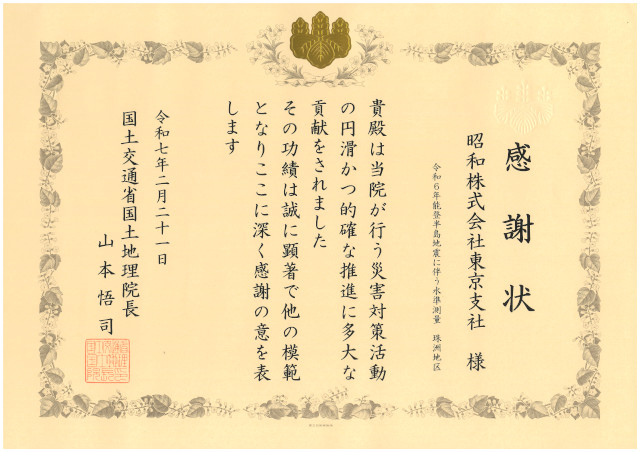 感謝状
昭和株式会社東京支社 様
令和6年能登半島地震に伴う水準測量 珠洲地区
貴殿は当院が行う災害対策活動
の円滑かつ的確な推進に多大な
貢献をされました
その功績は誠に顕著で他の模範
となりここに深く感謝の意を表
します
令和七年二月二十一日
国土交通省国土地理院長
山本悟司